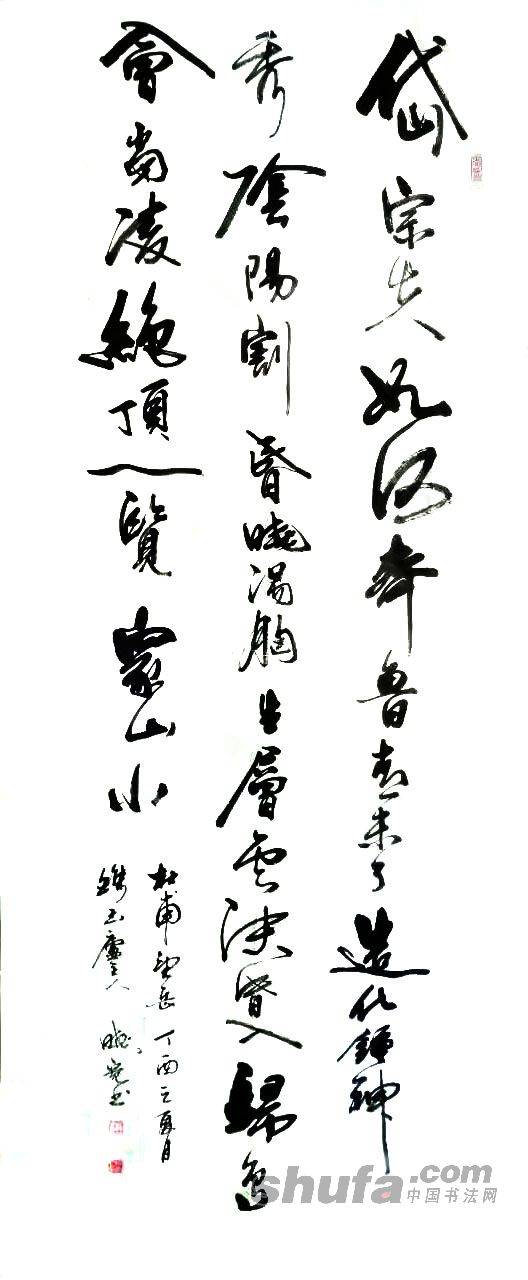 岱宗夫如何齊魯青未了造化鍾神
秀陰陽割昏曉湯胸生層云決眥入歸鳥
會當凌絕頂一覽眾山小
杜甫望岳丁酉之夏月
玉廬主人書
shufa.com
中国书法网